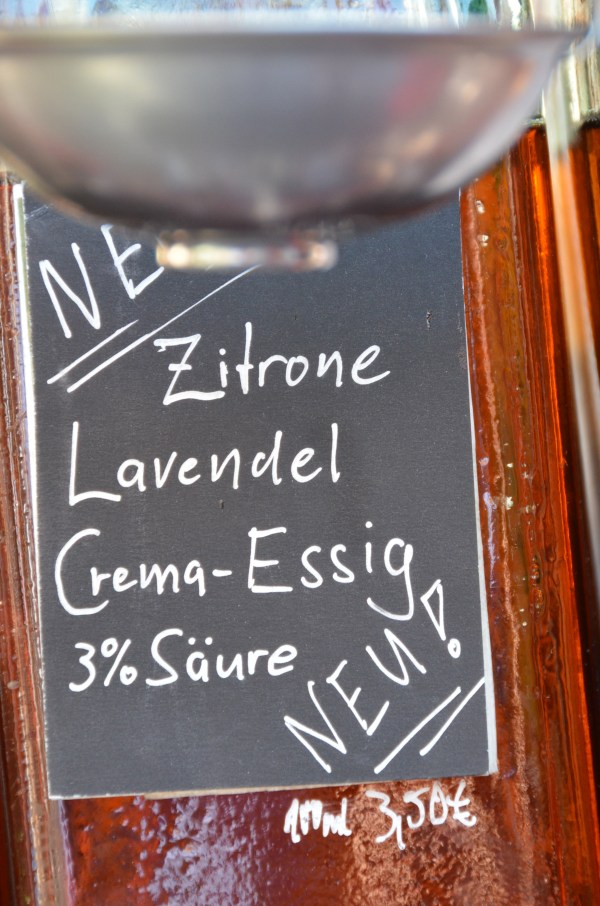 NE
Zitrone
Lavendel
Crema-Essig
3% Säure
NEU!
100ml 3,50€